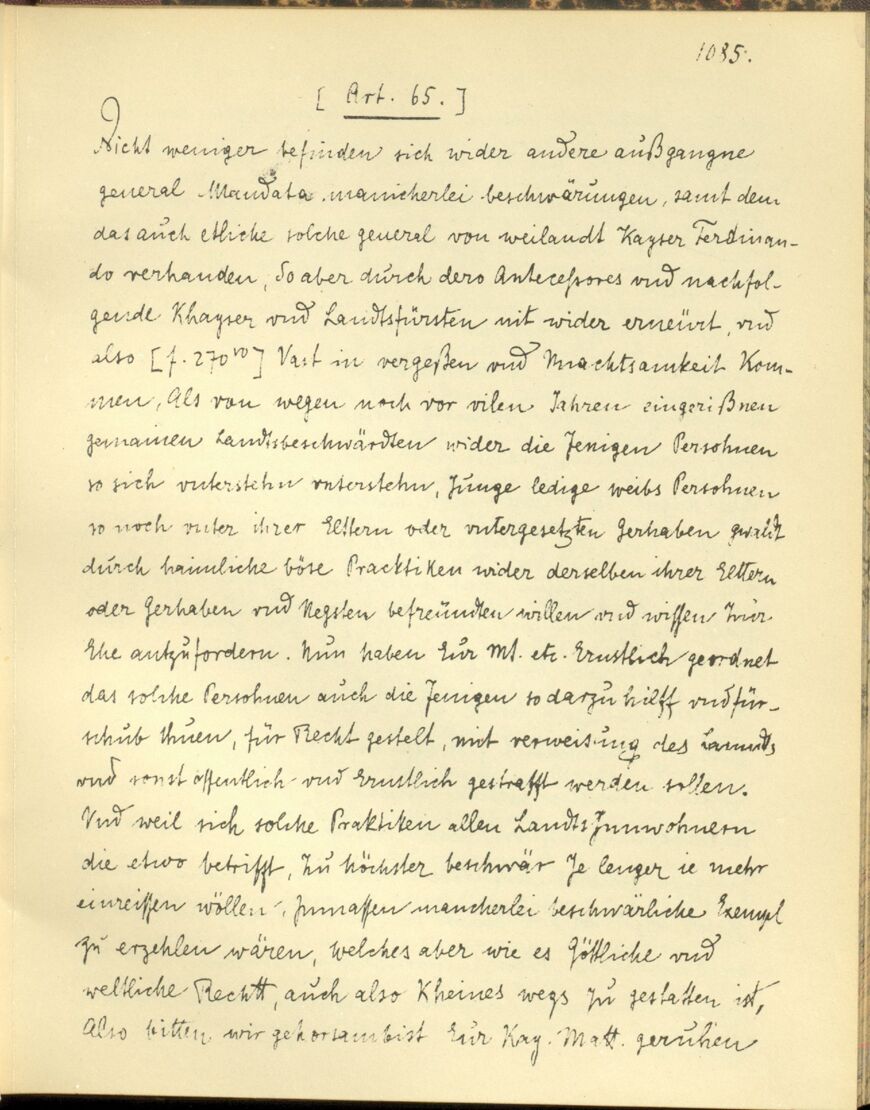 1085.
[ Art. 65. ]
Nicht weniger befinden sich wider andere außgangne
general Mandata manicherlei beschwärungen, samt dem
das auch etliche solche general von weilandt Kayser Ferdinan-
do verhanden, So aber durch dero Antecessores vnd nachfol-
gende Khayser vnd Landtsfürsten nit wider erneürt, vnd
also [f. 270vo] Vast in vergeßen vnd Vnachtsamkeit Kom-
men, Als von wegen noch vor vilen Jahren eingerißnen
gemainen Landtsbeschwärdten wider die Jenigen Persohnen
so sich vnterstehn vnterstehn, Junge ledige weibs Persohnen
so noch vnter ihrer Elttern oder vntergesetzten Gerhaben gwaldt
durch haimliche böse Practiken wider derselben ihrer Elttern
oder Gerhaben vnd Negsten befreündten willen vnd wissen Zur
Ehe antzufordern. Nun haben Eur Mt. etc. Ernstlich geordnet
das solche Persohnen auch die Jenigen so darzu hilff vnd für-
schub thuen, für Recht gestelt, mit verweisung des Lanndts
vnd sonst öffentlich vnd Ernstlich gestrafft werden sollen.
Vnd weil sich solche Praktiken allen Landts Innwohnern
die etwo betrifft, Zu höchster beschwär Je lenger ie mehr
einreissen wöllen, Inmassen mancherlei beschwärliche Exempl
zu erzehlen wären, welches aber wie es Göttliche vnd
weltliche Rechtt, auch also Kheines wegs zu gestatten ist,
Also bitten wir gehorsambist Eur Kay. Matt. geruhen